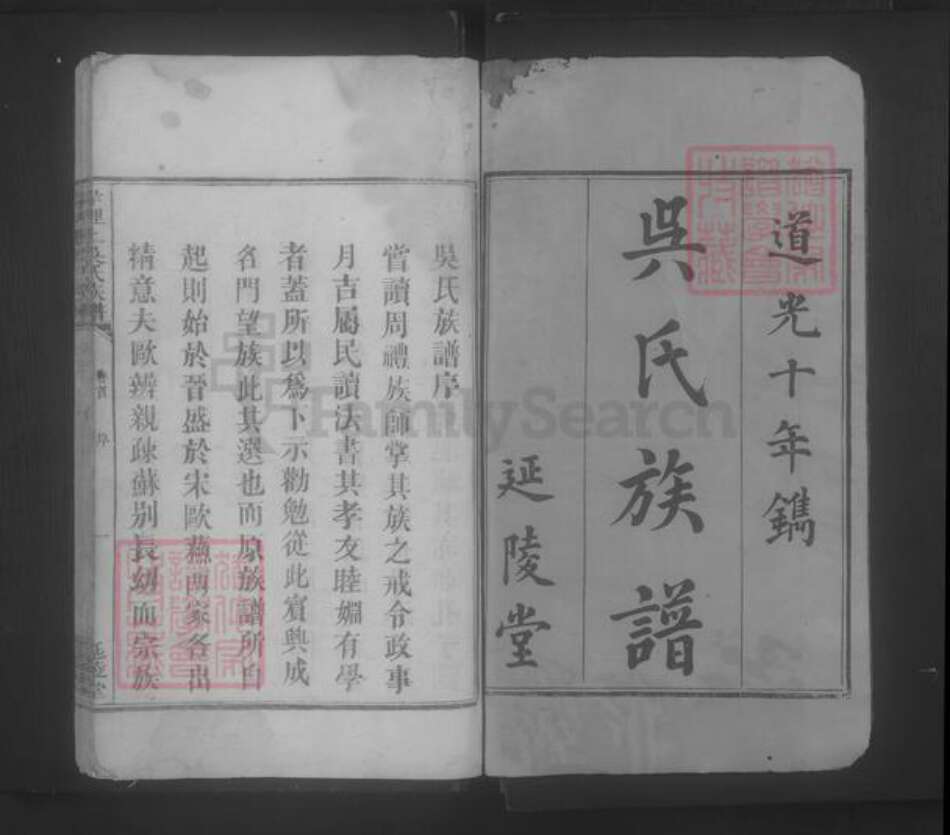 道光十年鐫
吳氏族譜
延陵堂
吳氏族譜序
嘗讀周禮族師掌其族之戒令政事
月吉屬民讀法書其孝友睦婣有學
者蓋所以爲卜示勸勉從此賓興成
名門望族此其選也而原族譜所自
起則始於晉盛於宋歐蘇兩家各出
精意夫歐辨親疎蘇别長幼而宗族
吳氏族譜
序
一
延陵堂
FamilySearch